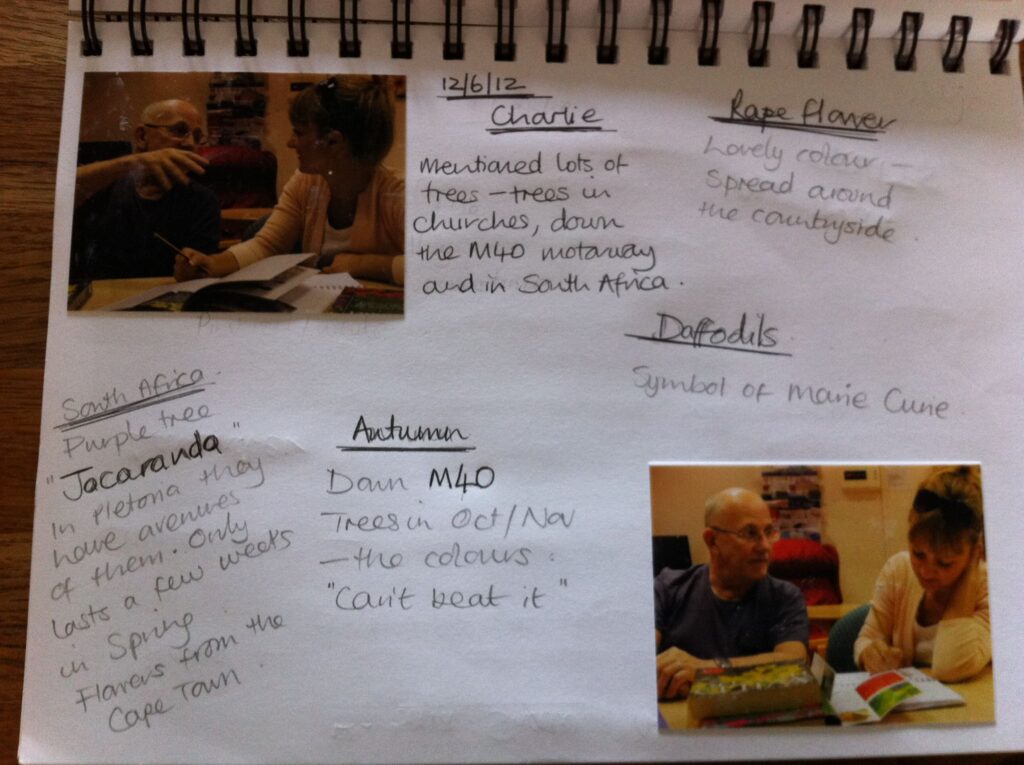 12/6/12
Charlie
Mentioned lots of
trees – trees in
churches, down
the M40 motorway
and in South Africa.
Rape flower
Lovely colour –
Spread around
the countryside.
Daffodils
Symbol of Marie Curie.
South Africa.
Purple tree
"Jacaranda"
In Pletona they
have avenues
of them. Only
lasts a few weeks
in Spring.
Flowers from the
Cape Town.
Autumn
Down M40
Trees in Oct/Nov
– the colours.
"Can't beat it"